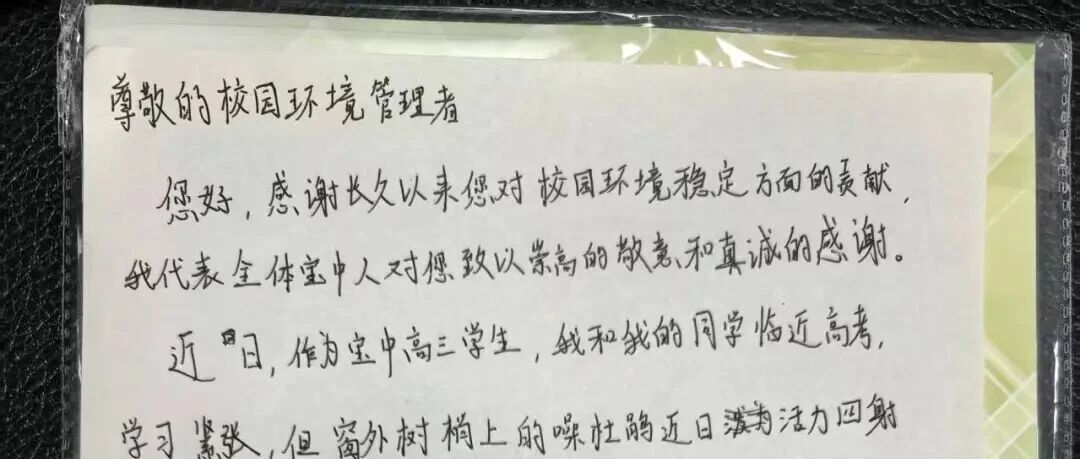 尊敬的校园环境管理者
您好，感谢长久以来您对校园环境稳定方面的贡献，
我代表全体宝中人对您致以崇高的敬意和真诚的感谢。
近日，作为宝中高三学生，我和我的同学临近高考，
学习紧张，但窗外树梢上的噪杜鹃近日活力四射